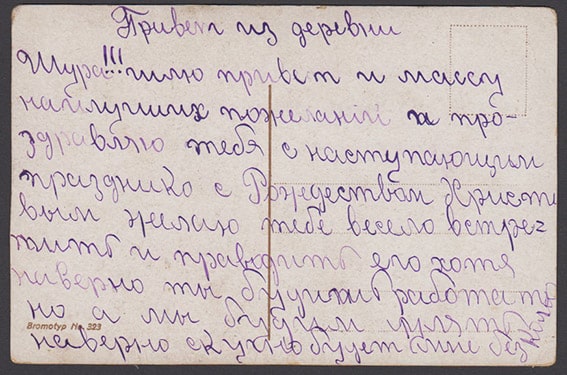 Привет из деревни
Шура!!! шлю привет и массу
наилучших пожеланий и про-
здравляю тебя с наступающим
празднико с Рождеством Христо
вым желаю тебе весело встре=
тить и праводить его хотя
наверно ты будиш работать
но а мы будим гулять
наверно скучно будет мне без
Bromotyp No. 323